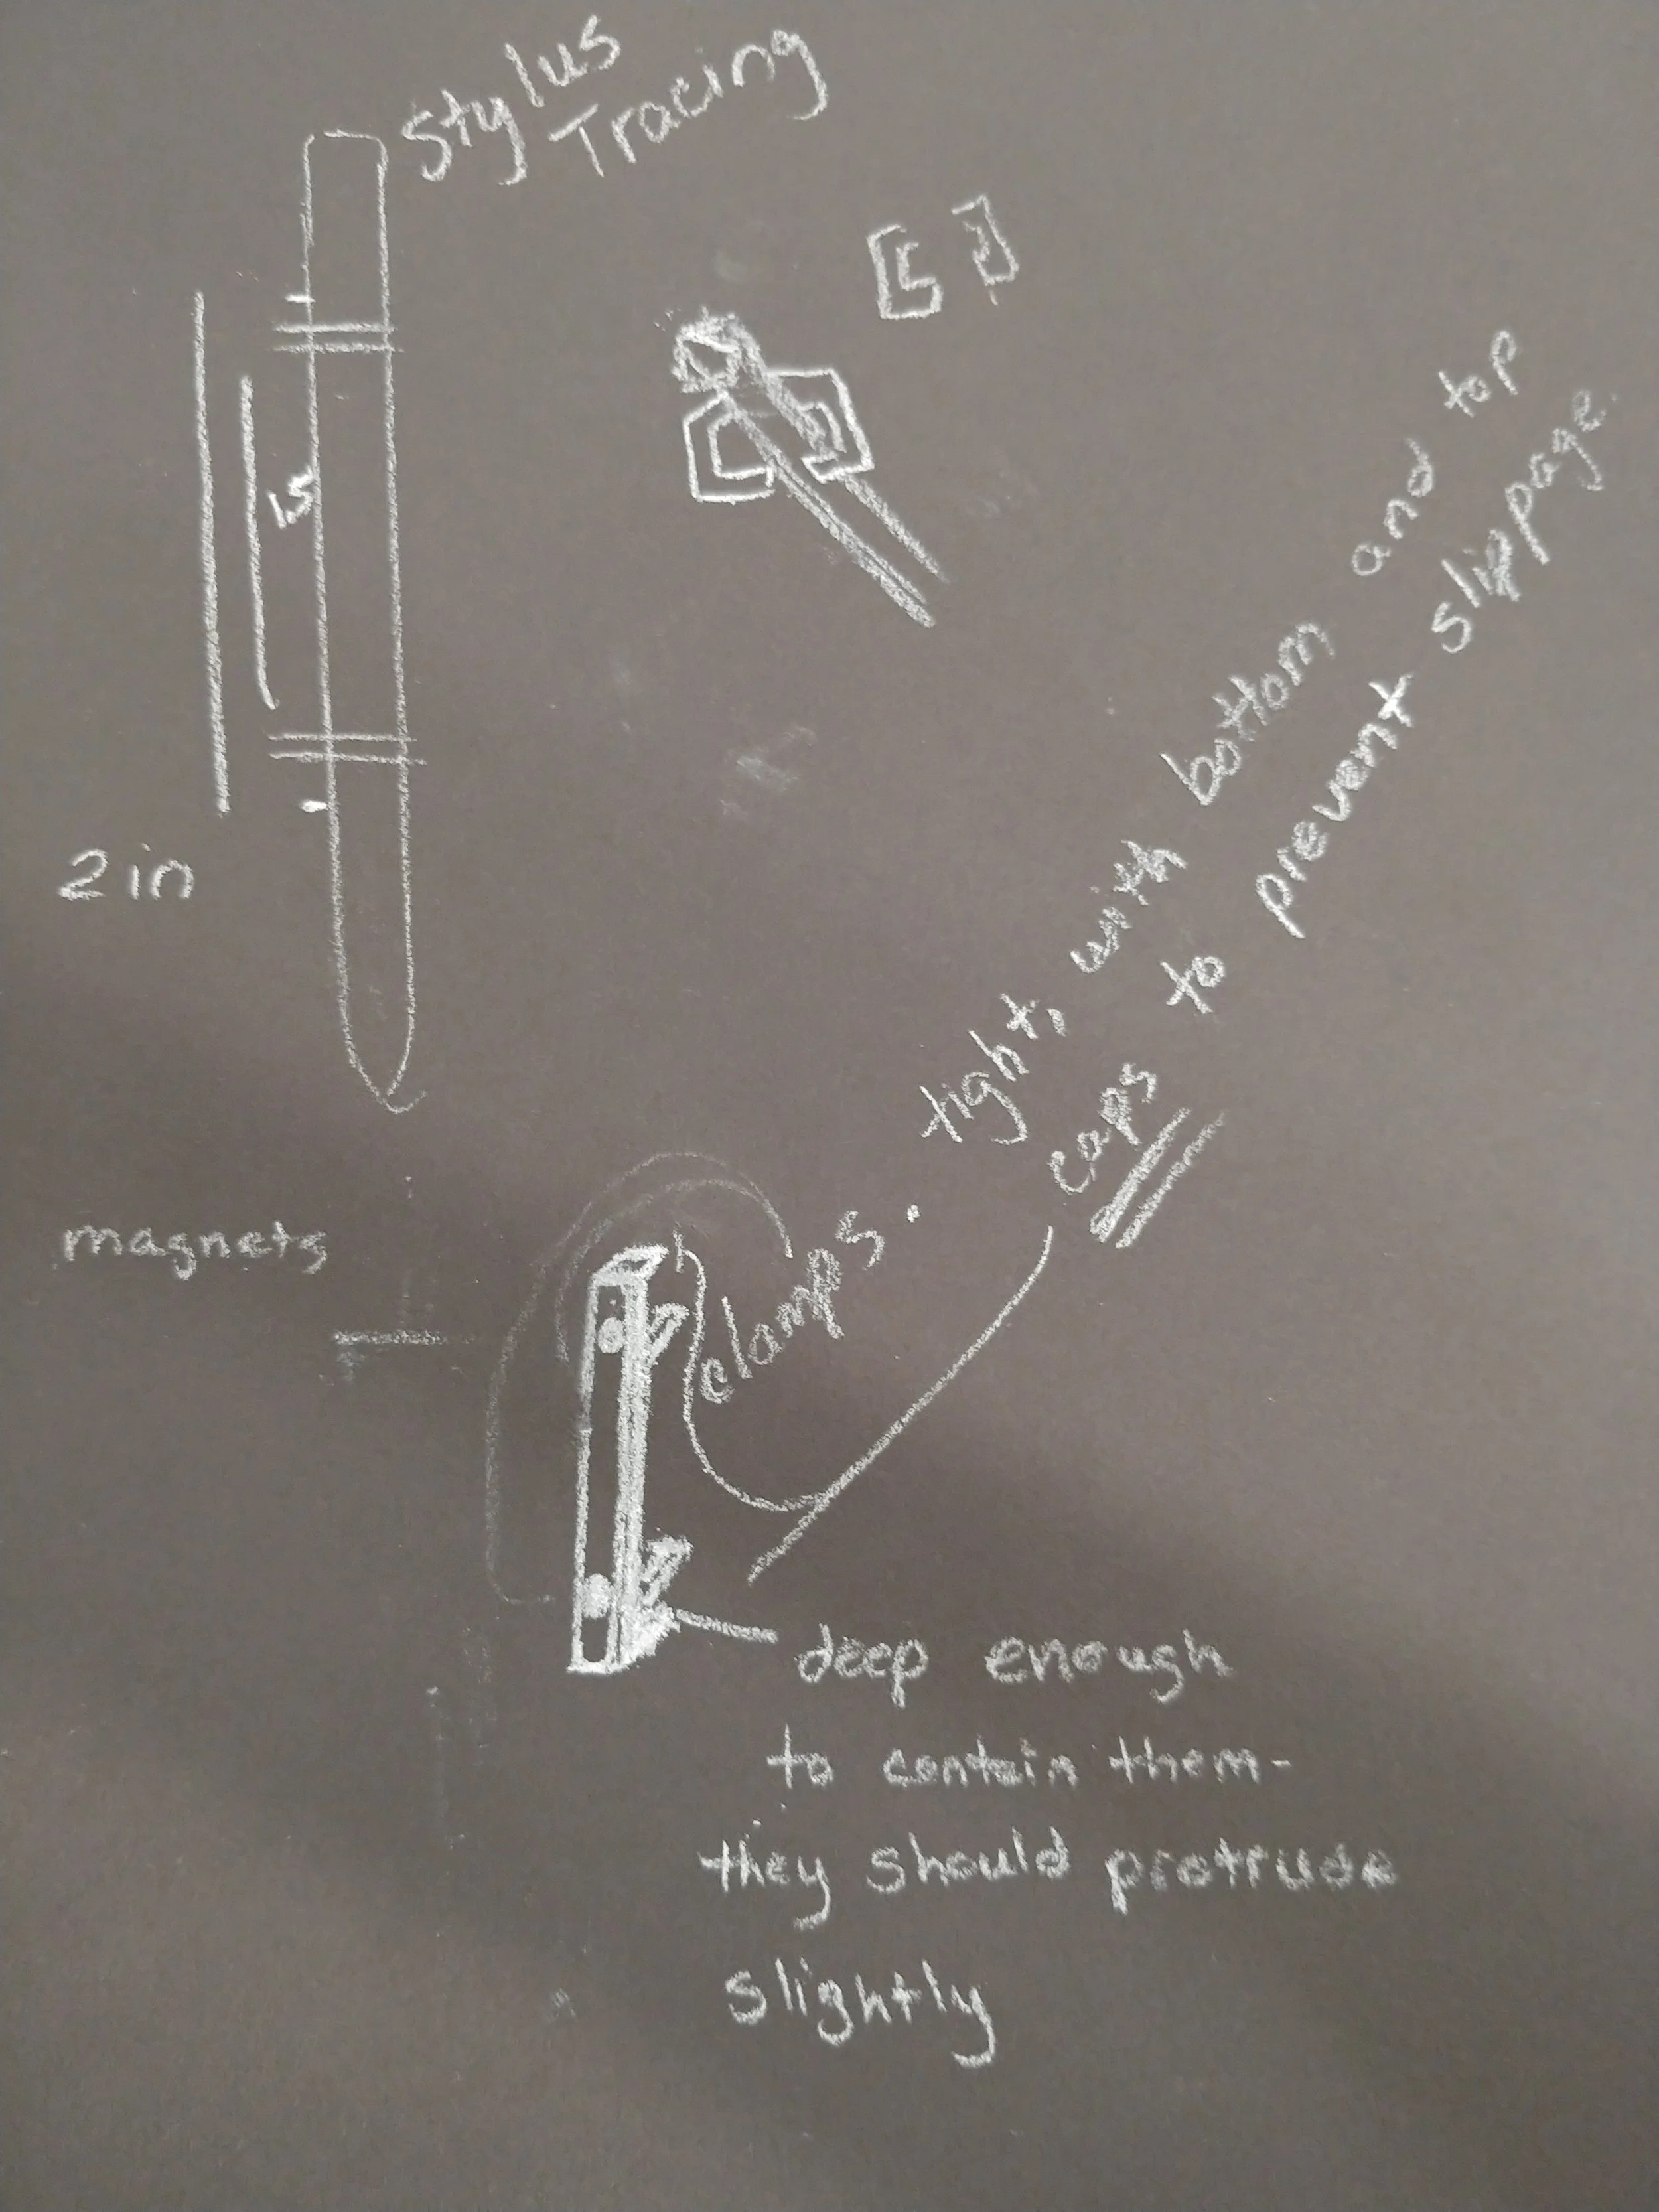 Stylus
Tracing
1.5
2 in
magnets
clamps. tight, with bottom and top
caps to prevent slippage.
deep enough
to contain them-
they should protrude
slightly